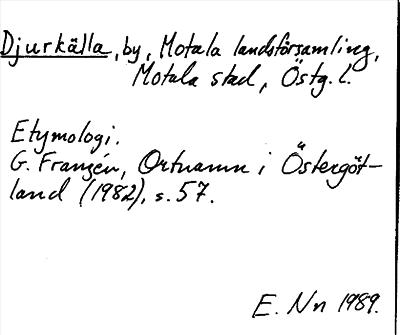 Djurkälla, by, Motala landsförsamling,
Motala stad, Östg. l.
Etymologi.
G. Franzén, Ortnamn i Östergöt-
land (1982), s. 57.
E. Nn 1989.